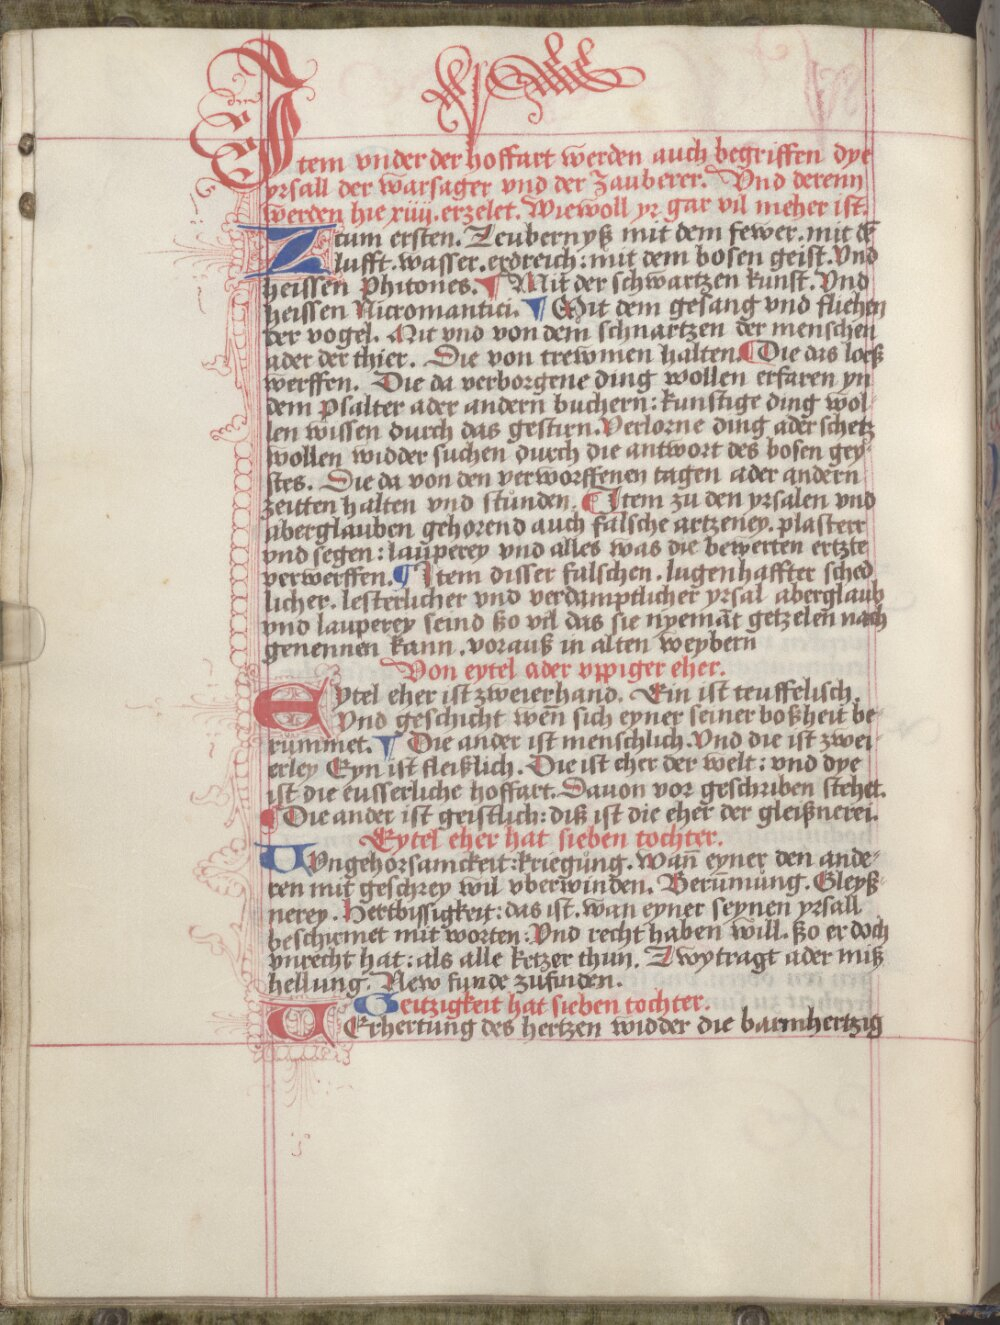 Item vnder der hoffart werden auch begriffen dye
yrsall der warsager vnd der Zauberer. Vnd derenn
werden hie xiiii. erzelet. Wiewoll yr gar vil meher ist.
Zcum ersten. Zeubernyß mit dem fewer. mit dē
lufft. wasser. erdreich: mit dem bosen geist. Vnd
heissen Phitones. ¶ Mit der schwartzen kunst. Vnd
heissen Nicromantici. ¶ Mit dem gesang vnd fliehen
der vogel. Mit vnd von dem schnartzen der menschen
ader der thier. Die von trewmen halten. ¶ Die das loeß
werffen. Die da verborgene ding wollen erfaren yn
dem psalter ader andern buchern: kunftige ding wol-
len wissen durch das gestirn. Verlorne ding ader schetz
wollen widder suchen durch die antwort des bosen gey-
stes. Die da von den verworffenen tagen ader andern
zeitten halten vnd stunden. ¶ Item zu den yrsalen vnd
aberglauben gehorend auch falsche artzeney. plasterr
vnd segen: lauperey vnd alles was die bewerten ertzte
verwerffen. ¶ Item disser falschen. lugenhaffter sched
licher. lesterlicher vnd verdamptlicher yrsal aberglaub
vnd lauperey seind ßo vil das sie nyemāt getzelen nach
genennen kann. vorauß in alten weybern
Von eytel ader vppiger eher.
Eytel eher ist zweierhand. Ein ist teuffelisch.
Vnd geschicht wen̄ sich eyner seiner boßheit be-
rummet. ¶ Die ander ist menschlich. Vnd die ist zwei-
erley Eyn ist fleißlich. Die ist eher der welt: vnd dye
ist die eusserliche hoffart. Dauon vor geschriben stehet.
¶ Die ander ist geistlich: diß ist die eher der gleißnerei.
Eytel eher hat sieben tochter.
Vngehorsamckeit: kriegung. wan̄ eyner den ande-
ren mit geschrey wil vberwinden. Berumung. Gleyß-
nerey. Hertbissigkeit: das ist. wan eyner seynen yrsall
beschirmet mit worten: Vnd recht haben will. ßo er doch
vnrecht hat: als alle ketzer thun. Zwytragt ader miß
hellung. New funde zufinden.
Geitzigkeit hat sieben tochter.
VErhertung des hertzen widder die barmhertzig